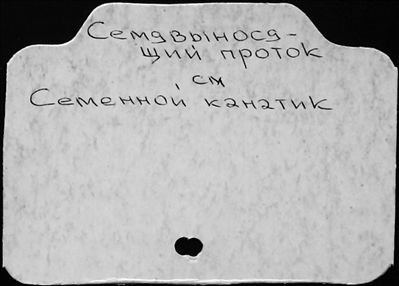 Семявынося-
щий проток
см
Семенной канатик